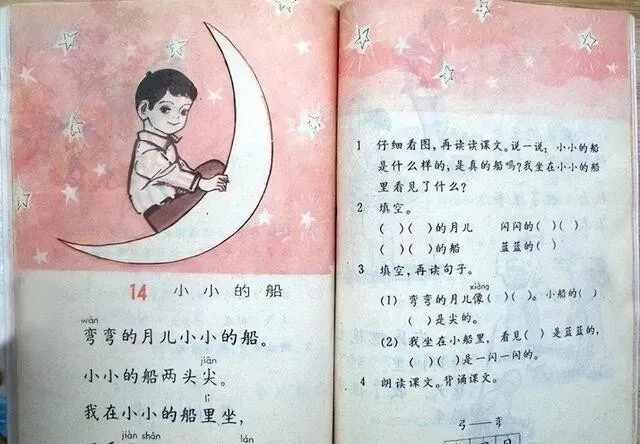 14 小小的船
wān
弯弯的月儿小小的船。
jiān
小小的船两头尖。
lǐ
我在小小的船里坐,
jiàn shǎn lán
1 仔细看图,再读读课文。说一说:小小的船
是什么样的,是真的船吗?我坐在小小的船
里看见了什么?
2 填空。
( )( )的月儿 闪闪的( )( )
( )( )的船 蓝蓝的( )
3 填空,再读句子。
xiàng
(1) 弯弯的月儿像( )( )。小船的( )
( )是尖的。
(2) 我坐在小船里,看见( )是蓝蓝的,
( )( )是一闪一闪的。
4 朗读课文。背诵课文。
弓——弯